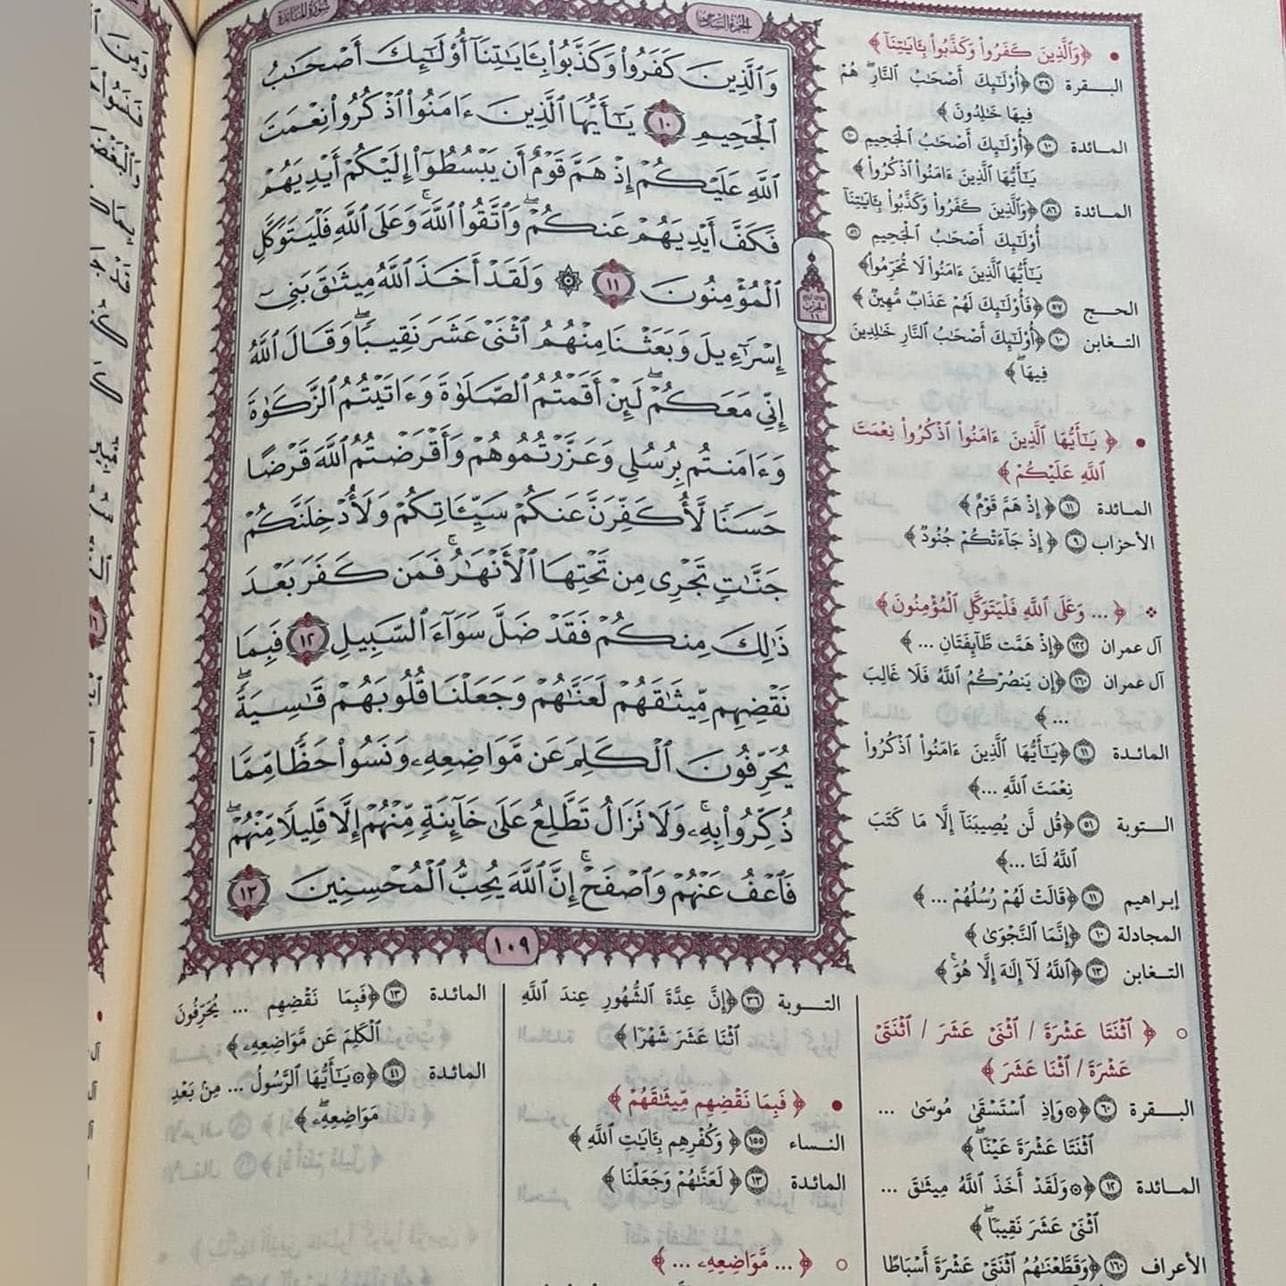 سورة المائدة
الجزء السادس
وَٱلَّذِينَ كَفَرُوا۟ وَكَذَّبُوا۟ بِـَٔايَـٰتِنَآ أُو۟لَـٰٓئِكَ أَصْحَـٰبُ
ٱلْجَحِيمِ ١٠ يَـٰٓأَيُّهَا ٱلَّذِينَ ءَامَنُوا۟ ٱذْكُرُوا۟ نِعْمَتَ
ٱللَّهِ عَلَيْكُمْ إِذْ هَمَّ قَوْمٌ أَن يَبْسُطُوٓا۟ إِلَيْكُمْ أَيْدِيَهُمْ
فَكَفَّ أَيْدِيَهُمْ عَنكُمْ ۖ وَٱتَّقُوا۟ ٱللَّهَ ۚ وَعَلَى ٱللَّهِ فَلْيَتَوَكَّلِ
ٱلْمُؤْمِنُونَ ١١ ۞ وَلَقَدْ أَخَذَ ٱللَّهُ مِيثَـٰقَ بَنِىٓ
إِسْرَٰٓءِيلَ وَبَعَثْنَا مِنْهُمُ ٱثْنَىْ عَشَرَ نَقِيبًا ۖ وَقَالَ ٱللَّهُ
إِنِّى مَعَكُمْ ۖ لَئِنْ أَقَمْتُمُ ٱلصَّلَوٰةَ وَءَاتَيْتُمُ ٱلزَّكَوٰةَ
وَءَامَنتُم بِرُسُلِى وَعَزَّرْتُمُوهُمْ وَأَقْرَضْتُمُ ٱللَّهَ قَرْضًا
حَسَنًا لَّأُكَفِّرَنَّ عَنكُمْ سَيِّـَٔاتِكُمْ وَلَأُدْخِلَنَّكُمْ
جَنَّـٰتٍ تَجْرِى مِن تَحْتِهَا ٱلْأَنْهَـٰرُ ۚ فَمَن كَفَرَ بَعْدَ
ذَٰلِكَ مِنكُمْ فَقَدْ ضَلَّ سَوَآءَ ٱلسَّبِيلِ ١٢ فَبِمَا
نَقْضِهِم مِّيثَـٰقَهُمْ لَعَنَّـٰهُمْ وَجَعَلْنَا قُلُوبَهُمْ قَـٰسِيَةً ۖ
يُحَرِّفُونَ ٱلْكَلِمَ عَن مَّوَاضِعِهِۦ ۙ وَنَسُوا۟ حَظًّا مِّمَّا
ذُكِّرُوا۟ بِهِۦ ۚ وَلَا تَزَالُ تَطَّلِعُ عَلَىٰ خَآئِنَةٍ مِّنْهُمْ إِلَّا قَلِيلًا مِّنْهُمْ ۖ
فَٱعْفُ عَنْهُمْ وَٱصْفَحْ ۚ إِنَّ ٱللَّهَ يُحِبُّ ٱلْمُحْسِنِينَ ١٣
١٠٩
• ﴿وَٱلَّذِينَ كَفَرُوا۟ وَكَذَّبُوا۟ بِـَٔايَـٰتِنَآ﴾
البقرة ٣٩ ﴿أُو۟لَـٰٓئِكَ أَصْحَـٰبُ ٱلنَّارِ ۖ هُمْ
فِيهَا خَـٰلِدُونَ﴾
المائدة ١٠ ﴿أُو۟لَـٰٓئِكَ أَصْحَـٰبُ ٱلْجَحِيمِ ١٠
يَـٰٓأَيُّهَا ٱلَّذِينَ ءَامَنُوا۟ ٱذْكُرُوا۟﴾
المائدة ٨٦ ﴿وَٱلَّذِينَ كَفَرُوا۟ وَكَذَّبُوا۟ بِـَٔايَـٰتِنَآ
أُو۟لَـٰٓئِكَ أَصْحَـٰبُ ٱلْجَحِيمِ ٨٦
يَـٰٓأَيُّهَا ٱلَّذِينَ ءَامَنُوا۟ لَا تُحَرِّمُوا۟﴾
الحج ٥٧ ﴿فَأُو۟لَـٰٓئِكَ لَهُمْ عَذَابٌ مُّهِينٌ﴾
التغابن ١٠ ﴿أُو۟لَـٰٓئِكَ أَصْحَـٰبُ ٱلنَّارِ خَـٰلِدِينَ
فِيهَا ۖ﴾
• ﴿يَـٰٓأَيُّهَا ٱلَّذِينَ ءَامَنُوا۟ ٱذْكُرُوا۟ نِعْمَتَ
ٱللَّهِ عَلَيْكُمْ﴾
المائدة ١١ ﴿إِذْ هَمَّ قَوْمٌ﴾
الأحزاب ٩ ﴿إِذْ جَآءَتْكُمْ جُنُودٌ﴾
﴿... وَعَلَى ٱللَّهِ فَلْيَتَوَكَّلِ ٱلْمُؤْمِنُونَ﴾
آل عمران ١٢٢ ﴿إِذْ هَمَّت طَّآئِفَتَانِ ...﴾
آل عمران ١٦٠ ﴿إِن يَنصُرْكُمُ ٱللَّهُ فَلَا غَالِبَ
...﴾
المائدة ١١ ﴿يَـٰٓأَيُّهَا ٱلَّذِينَ ءَامَنُوا۟ ٱذْكُرُوا۟
نِعْمَتَ ٱللَّهِ ...﴾
التوبة ٥١ ﴿قُل لَّن يُصِيبَنَآ إِلَّا مَا كَتَبَ
ٱللَّهُ لَنَا ...﴾
إبراهيم ١١ ﴿قَالَتْ لَهُمْ رُسُلُهُمْ ...﴾
المجادلة ١٠ ﴿إِنَّمَا ٱلنَّجْوَىٰ﴾
التغابن ١٣ ﴿ٱللَّهُ لَآ إِلَـٰهَ إِلَّا هُوَ ۚ﴾
○ ﴿ٱثْنَتَا عَشْرَةَ / ٱثْنَىْ عَشَرَ / ٱثْنَتَىْ
عَشْرَةَ / ٱثْنَا عَشَرَ﴾
البقرة ٦٠ ﴿۞ وَإِذِ ٱسْتَسْقَىٰ مُوسَىٰ ...
ٱثْنَتَا عَشْرَةَ عَيْنًا ۖ﴾
المائدة ١٢ ﴿۞ وَلَقَدْ أَخَذَ ٱللَّهُ مِيثَـٰقَ ...
ٱثْنَىْ عَشَرَ نَقِيبًا ۖ﴾
الأعراف ١٦٠ ﴿وَقَطَّعْنَـٰهُمُ ٱثْنَتَىْ عَشْرَةَ أَسْبَاطًا
التوبة ٣٦ ﴿إِنَّ عِدَّةَ ٱلشُّهُورِ عِندَ ٱللَّهِ
ٱثْنَا عَشَرَ شَهْرًا﴾
• ﴿فَبِمَا نَقْضِهِم مِّيثَـٰقَهُمْ﴾
النساء ١٥٥ ﴿وَكُفْرِهِم بِـَٔايَـٰتِ ٱللَّهِ﴾
المائدة ١٣ ﴿لَعَنَّـٰهُمْ وَجَعَلْنَا﴾
○ ﴿... مَّوَاضِعِهِۦ ...﴾
المائدة ١٣ ﴿فَبِمَا نَقْضِهِم ... يُحَرِّفُونَ
ٱلْكَلِمَ عَن مَّوَاضِعِهِۦ﴾
المائدة ٤١ ﴿۞ يَـٰٓأَيُّهَا ٱلرَّسُولُ ... مِنۢ بَعْدِ
مَوَاضِعِهِۦ ۖ﴾